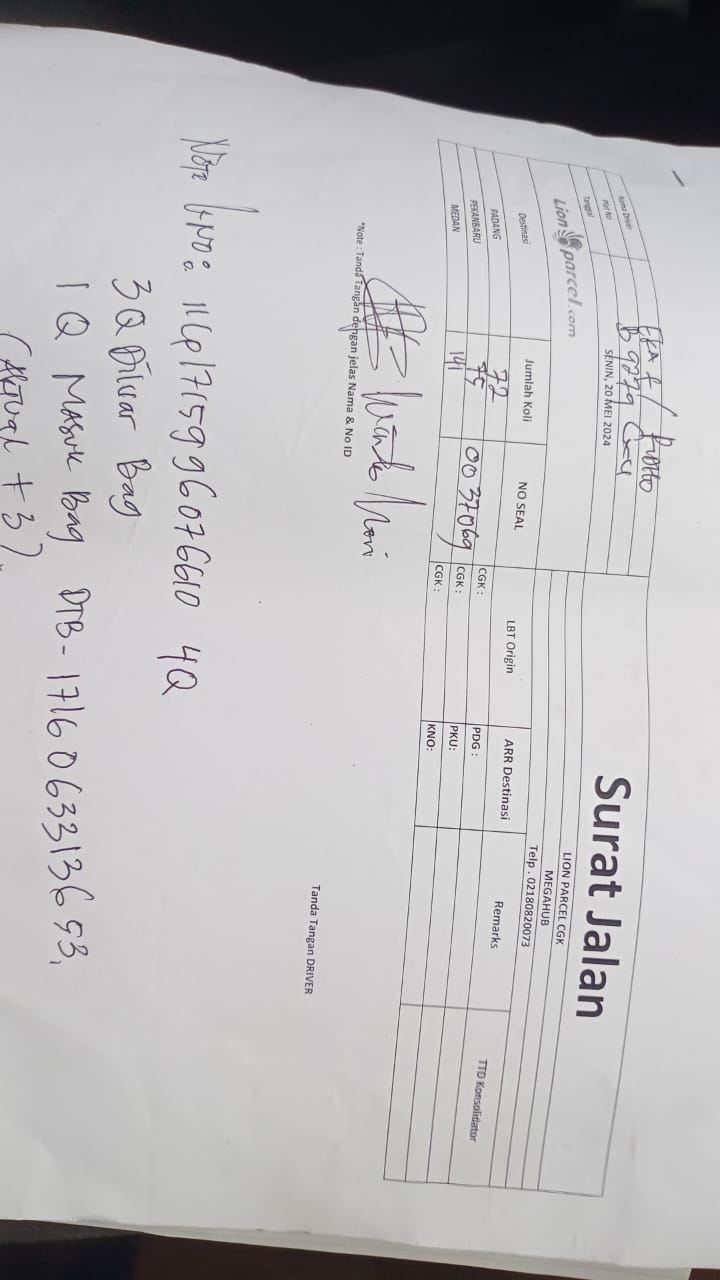 Nama Driver EKA f / RIDHO
Plat No B 9279
Tanggal SENIN, 20 MEI 2024
Lion parcel.com
Surat Jalan
LION PARCEL CGK
MEGAHUB
Telp . 02180820073
Destinasi Jumlah Koli NO SEAL LBT Origin ARR Destinasi Remarks TTD Konsolidator
PADANG 72 CGK : PDG :
PEKANBARU 75 0037069 CGK : PKU:
MEDAN 141 CGK : KNO:
*Note : Tanda Tangan dengan jelas Nama & No ID
Tanda Tangan DRIVER
Note KNO: 11LP1715996076610 4Q
3Q Diluar Bag
1 Q MASUK Bag DTB - 1716063313653,
(Aktual + 3).